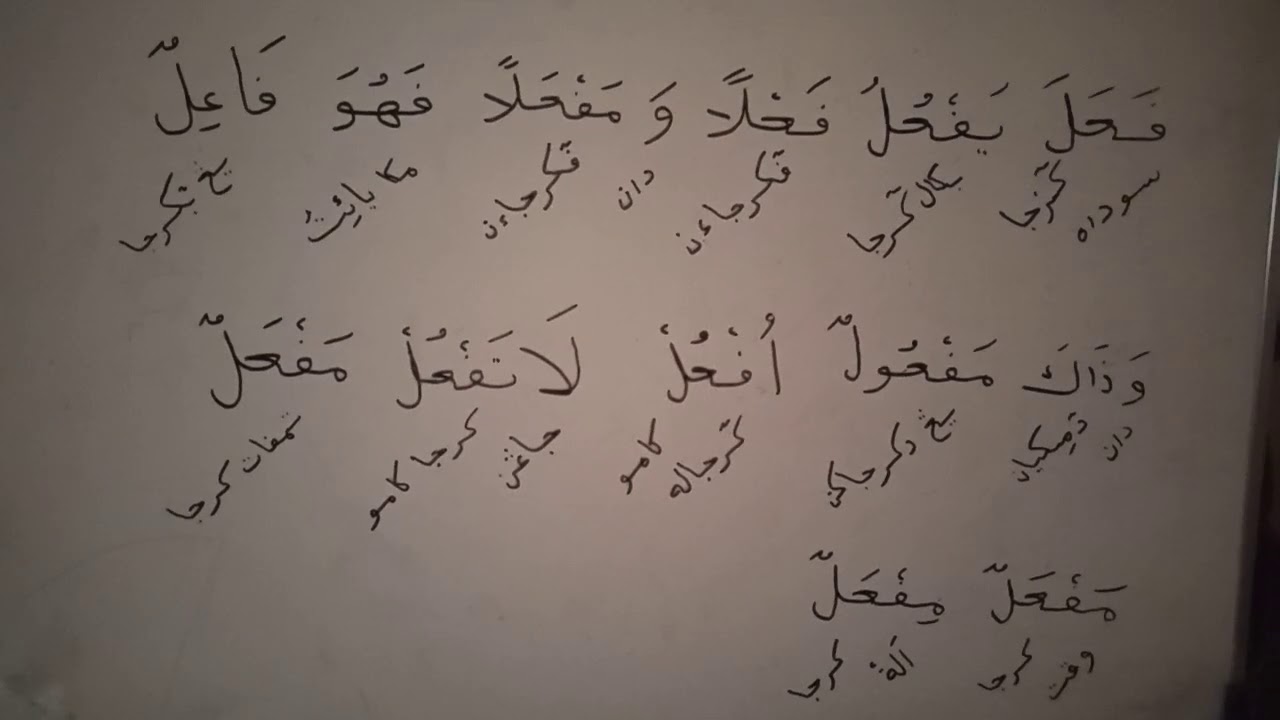 فَعَلَ يَفْعُلُ فَعْلًا وَ مَفْعَلًا فَهُوَ فَاعِلٌ
سوداه كرجا بكال كرجا فكرجاءن دان فكرجاءن مك يائيت يڠ بكرجا
وَذَاكَ مَفْعُولٌ أُفْعُلْ لَا تَفْعُلْ مَفْعَلٌ
دان دميكيان يڠ دكرجاني كرجاله كامو جاڠن كرجا كامو تمفات كرجا
مَفْعَلٌ مِفْعَلٌ
وقت كرجا الة كرجا